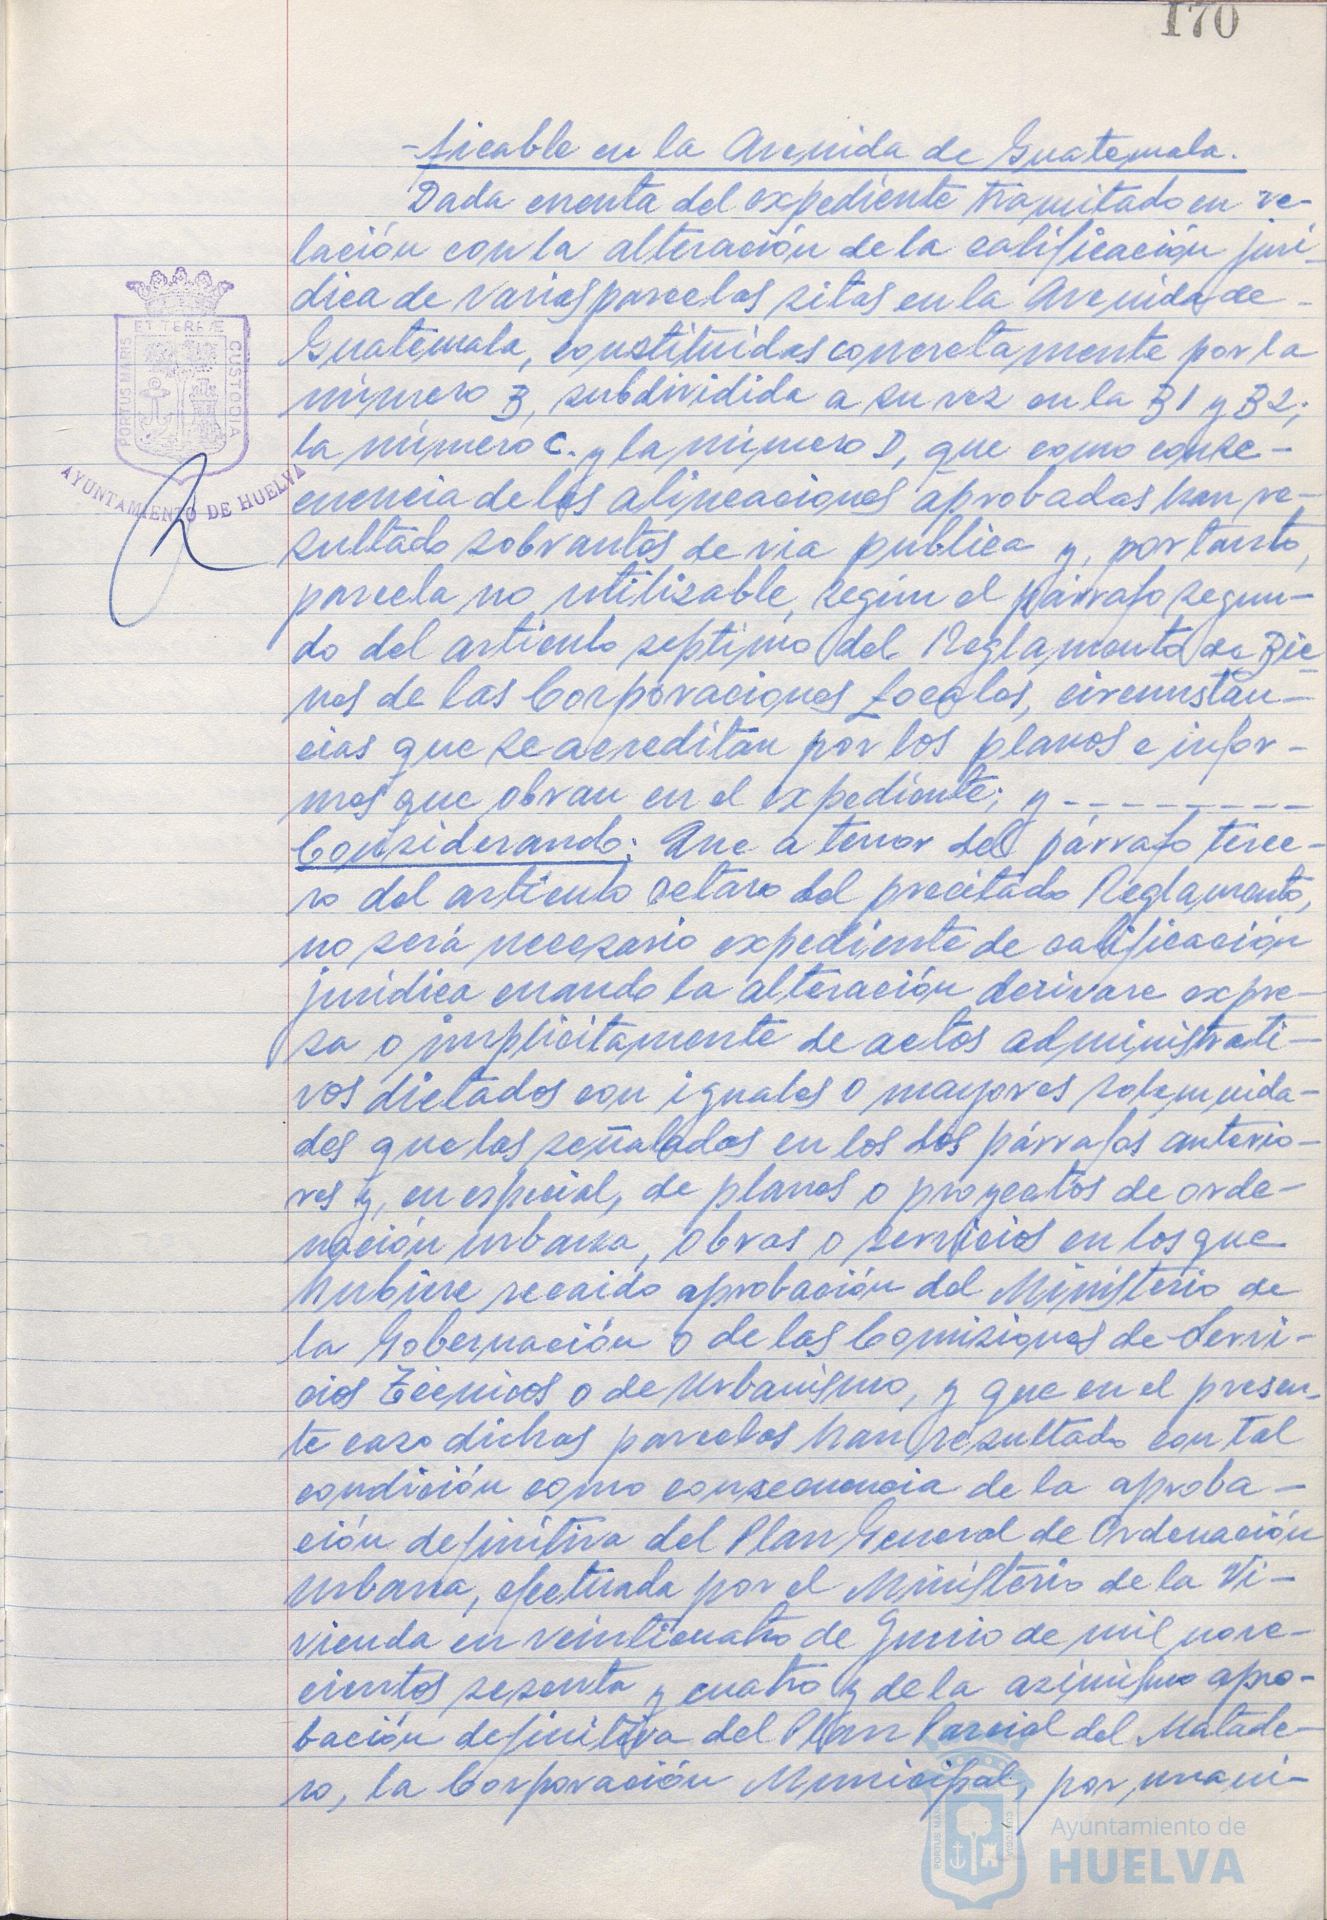 170
-ficable en la Avenida de Guatemala.
Dada cuenta del expediente tramitado en re-
lación con la alteración de la calificación jurí-
dica de varias parcelas sitas en la Avenida de -
Guatemala, constituidas concretamente por la
número B, subdividida a su vez en la B1 y B2;
la número C. y la número D, que como conse-
cuencia de las alineaciones aprobadas han re-
sultado sobrantes de via publica y, por tanto,
parcela no utilizable, según el párrafo segun-
do del artículo septimo del Reglamento de Bie-
nes de las Corporaciones Locales, circunstan-
cias que se acreditan por los planos e infor-
mes que obran en el expediente; y - - - - - - - -
Considerando: Que a tenor del párrafo terce-
ro del artículo octavo del precitado Reglamento,
no será necesario expediente de calificación
jurídica cuando la alteración derivare expre-
sa o implicitamente de actos administrati-
vos dictados con iguales o mayores solemnida-
des que las señaladas en los dos párrafos anterio-
res y, en especial, de planes o proyectos de orde-
nación urbana, obras o servicios en los que
hubiere recaido aprobación del Ministerio de
la Gobernación o de las Comisiones de Servi-
cios Técnicos o de Urbanismo, y que en el presen-
te caso dichas parcelas han resultado con tal
condición como consecuencia de la aproba-
ción definitiva del Plan General de Ordenación
Urbana, efectuada por el Ministerio de la Vi-
vienda en veinticuatro de Junio de mil nove-
cientos sesenta y cuatro y de la asimismo apro-
bación definitiva del Plan Parcial del Matade-
ro, la Corporación Municipal, por unani-
PORTUS MARIS
ET TERRÆ
CUSTODIA
AYUNTAMIENTO DE HUELVA
Ayuntamiento de
HUELVA